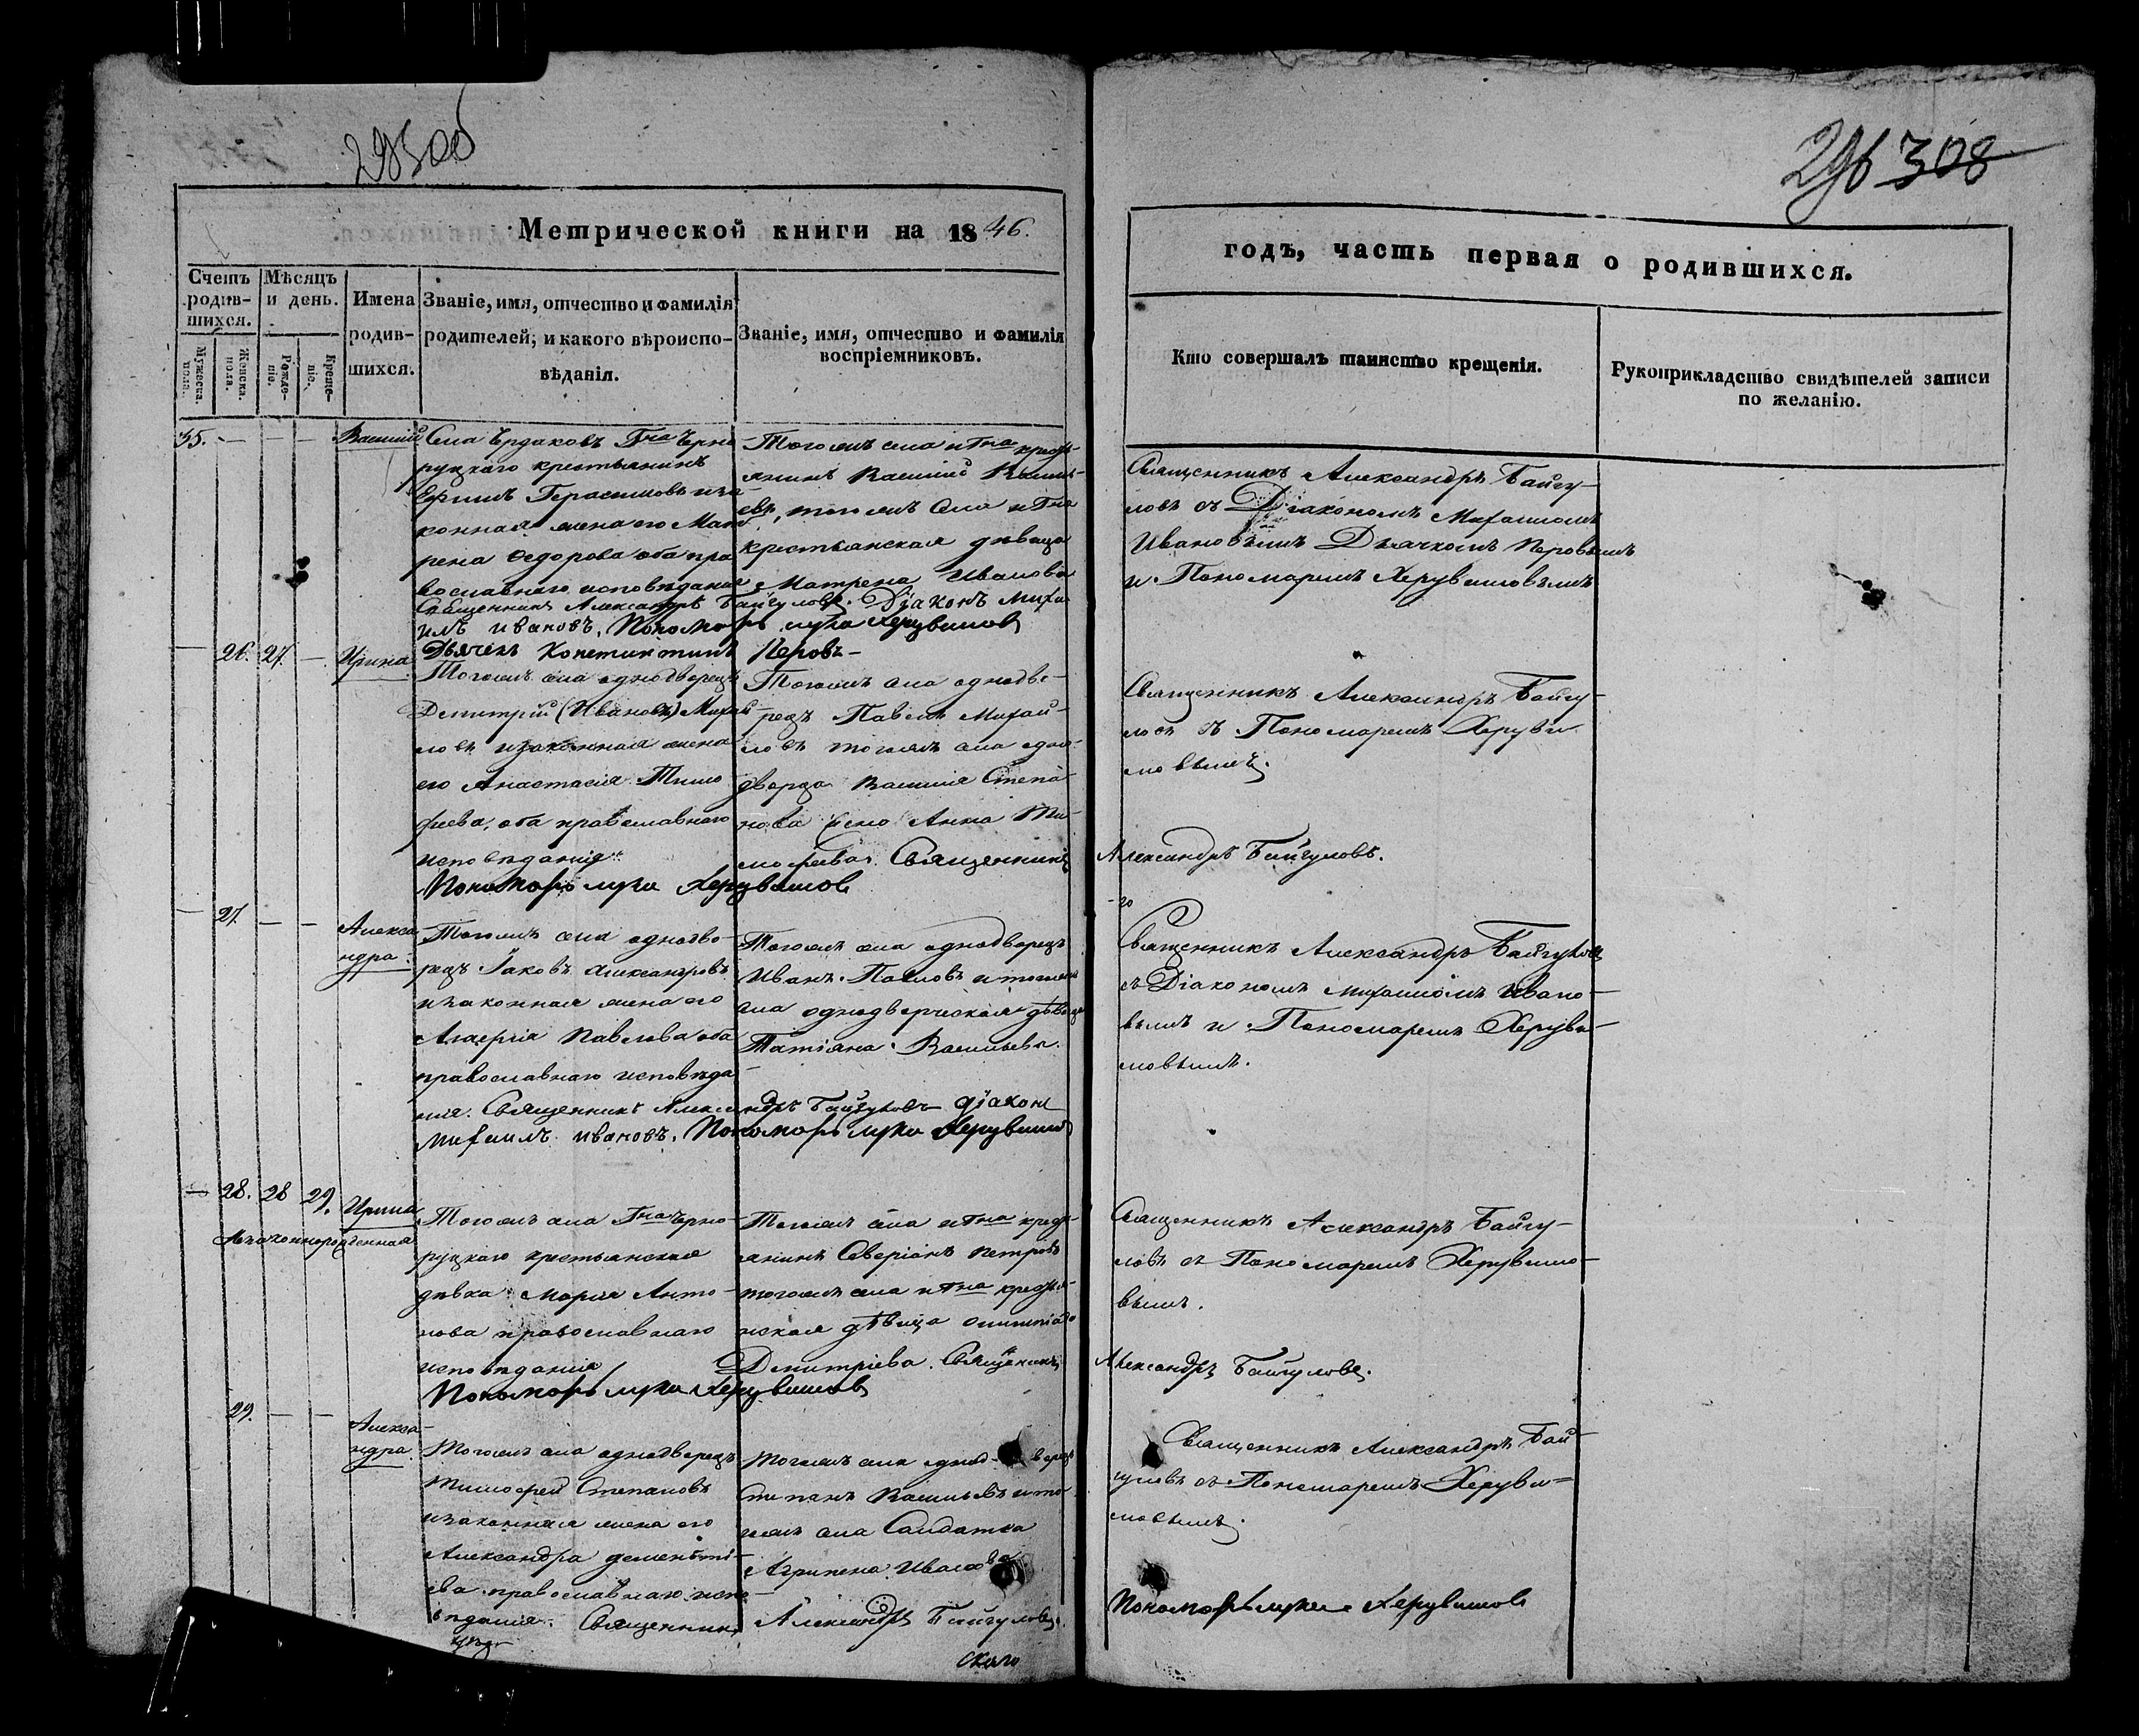 296 308
Метрической книги на 1846.
годъ, часть первая о родившихся.
Счетъ родив-
шихся.
Мужеска.
пола.
Женска.
пола.
Мѣсяцъ
и день.
Рожде-
ніе.
Креще-
ніе.
Имена
родив-
шихся.
Званіе, имя, отчество и фамилія
родителей, и какого вѣроиспо-
вѣданія.
Званіе, имя, отчество и фамилія
воспріемниковъ.
Кто совершалъ таинство крещенія.
Рукоприкладство свидѣтелей записи
по желанію.
35. — — —
Василій
Села Ердаковъ Гна Черно
руцкаго крестьянинъ
Ефимъ Герасимовъ иза
конная жена его Мат
рена Ѳедорова оба пра
вославнаго исповѣданія
Тогожъ села и Гна кресть-
янинъ Василій Василь-
евъ, тогожъ села и Гна
крестьянская дѣвица
Матрена Иванова
Священникъ Александръ Байгу-
ловъ съ Діакономъ Михаиломъ
Ивановымъ Дьячкомъ Перовымъ
и Пономаремъ Херувимовымъ
Священникъ Александръ Байгуловъ. Діаконъ Миха
илъ Ивановъ, Пономарь Лука Херувимовъ
Дьячекъ Константинъ Перовъ —
— 26. 27. —
Ирина
Тогожъ села однодворецъ
Димитрій (Ивановъ) Михай
ловъ изаконная жена
его Анастасія Тимо
феева, оба православнаго
исповѣданія
Тогожъ села однодво-
рецъ Павелъ Михай-
ловъ тогожъ села одно-
дворца Василія Степа-
нова жена Анна Ти-
мофеева. Священникъ
Священникъ Александръ Байгу-
ловъ съ Пономаремъ Херуви
мовымъ.
Александръ Байгуловъ.
Пономарь Лука Херувимовъ
— 27. — —
Алекса
ндра.
Тогожъ села однодво-
рецъ Іаковъ Александровъ
изаконная жена его
Павлова оба
православнаго исповѣда
нія. Священникъ Александръ Байгуловъ Діаконъ
Михаилъ Ивановъ, Пономарь Лука Херувимовъ
Тогожъ села однодворецъ
Иванъ Павловъ и тогожъ
села однодворческая дѣвица
Татіана Васильева.
Священникъ Александръ Байгуловъ
съ Діакономъ Михаиломъ Ивано-
вымъ и Пономаремъ Херуви-
мовымъ.
— 28. 28 29.
Ирина
Незаконнорожденная
Тогожъ села Гна Черно-
руцкаго крестьянская
дѣвка Марія Анто-
нова православнаго
исповѣданія
Тогожъ села и Гна кресть-
янинъ Северіанъ Петровъ
тогожъ села и Гна крестья-
нская дѣвица Олимпіада
Димитріева. Священникъ
Священникъ Александръ Байгу-
ловъ съ Пономаремъ Херувимо-
вымъ.
Александръ Байгуловъ.
Пономарь Лука Херувимовъ
29. — —
Алекса-
ндра.
Тогожъ села однодворецъ
Тимофей Степановъ
изаконная жена его
Александра Дементі-
ева православнаго испо-
вѣданія. Священникъ
Тогожъ села однодворецъ
Степанъ Васильевъ и то
гожъ села Солдатка
Агрипена Иванова
Александръ Байгуловъ.
Священникъ Александръ Бай-
гуловъ съ Пономаремъ Херуви-
мовымъ.
Пономарь Лука Херувимовъ
скаго